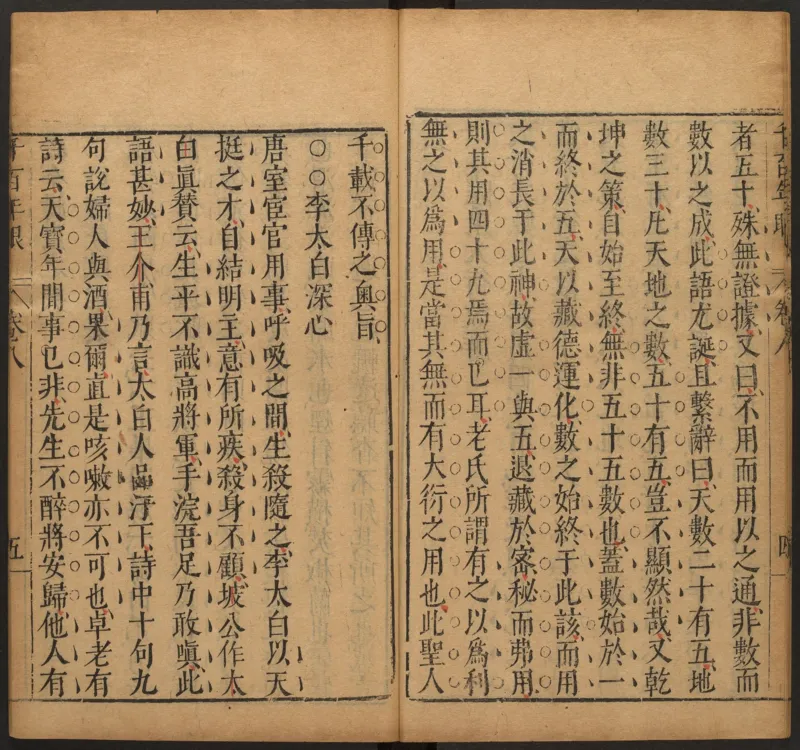 者五十殊無證據又曰不用而用以之通非數而
數以之成此語尤誕且繫辭曰天數二十有五地
數三十凡天地之數五十有五豈不顯然哉又乾
坤之策自始至終無非五十五數也蓋數始於一
而終於五天以藏德運化數之始終于此該而用
之消長于此神故虛一與五退藏於密秘而弗用
則其用四十九焉而已耳老氏所謂有之以爲利
無之以爲用是當其無而有大衍之用也此聖人
千載不傳之奧旨
○○李太白深心
唐室宦官用事呼吸之間生殺隨之李太白以天
挺之才自結明主意有所疾殺身不顧坡公作太
白眞贊云生平不識高將軍手浣吾足乃敢嗔此
語甚妙王介甫乃言太白人品汙下詩中十句九
句說婦人與酒果爾直是咳嗽亦不可也卓老有
詩云天寶年間事已非先生不醉將安歸他人有
千百年眼 卷八 五